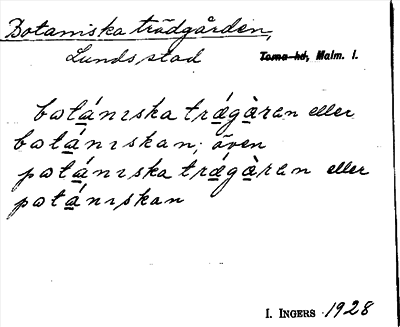 Botaniska trädgården,
Lunds stad Torna hd, Malm. l.
botánıska trǽgàran eller
botánıskan; även
potánıska trǽgàran eller
potánıskan
I. INGERS 1928